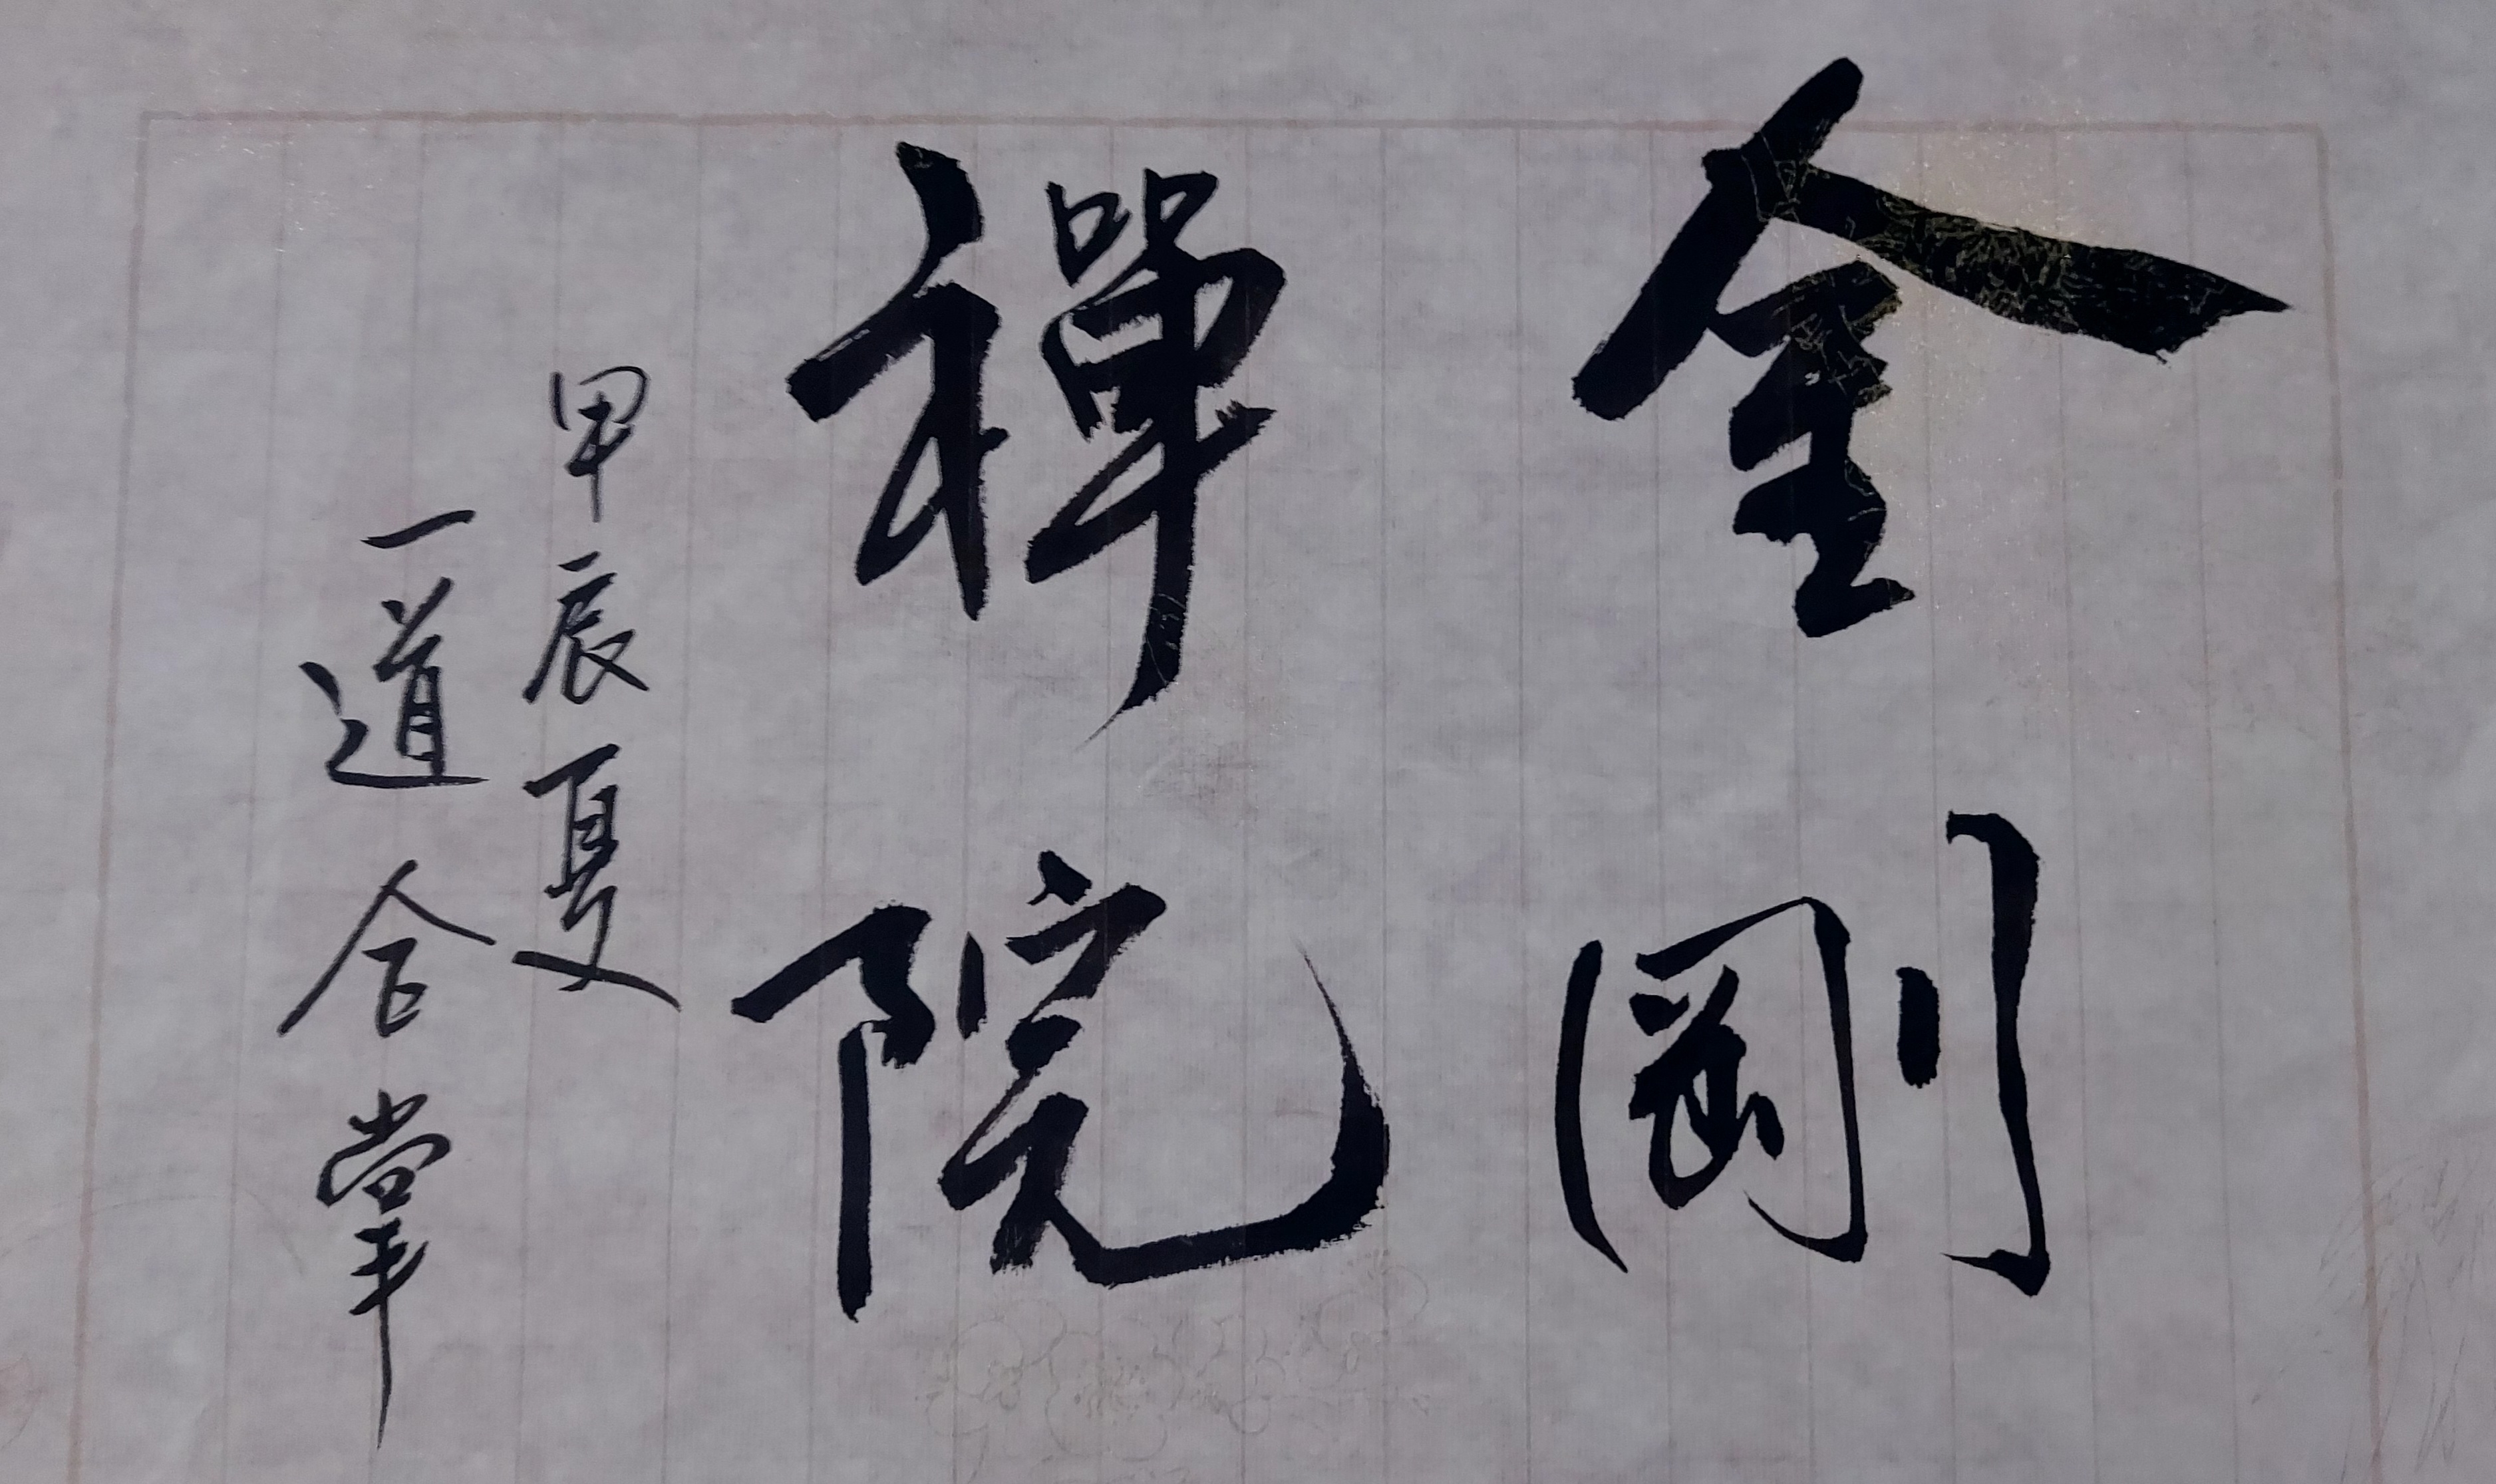 金剛
禪院
甲辰夏
一道合掌